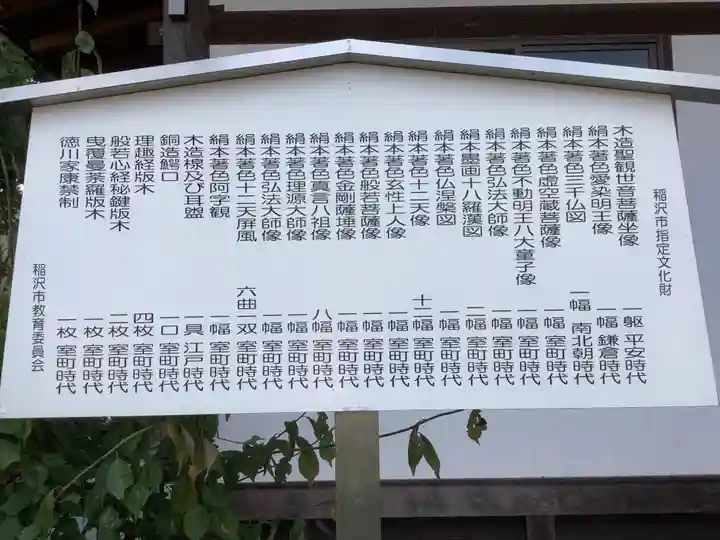 稲沢市指定文化財
木造聖観世音菩薩坐像 一躯 平安時代
絹本著色愛染明王像 一幅 鎌倉時代
絹本著色三千仏図 一幅 南北朝時代
絹本著色虚空蔵菩薩像 一幅 室町時代
絹本著色不動明王八大童子像 一幅 室町時代
絹本著色弘法大師像 一幅 室町時代
絹本墨画十八羅漢図 二幅 室町時代
絹本著色仏涅槃図 一幅 室町時代
絹本著色十二天像 十二幅 室町時代
絹本著色玄性上人像 一幅 室町時代
絹本著色般若菩薩像 一幅 室町時代
絹本著色金剛薩埵像 一幅 室町時代
絹本著色真言八祖像 八幅 室町時代
絹本著色理源大師像 一幅 室町時代
絹本著色弘法大師像 一幅 室町時代
絹本著色十二天屏風 六曲一双 室町時代
絹本著色阿字観 一幅 室町時代
木造線及び耳盥 一具 江戸時代
銅造鰐口 一口 室町時代
理趣経版木 四枚 室町時代
般若心経秘鍵版木 二枚 室町時代
曳覆曼荼羅版木 一枚 室町時代
徳川家康禁制 一枚 室町時代
稲沢市教育委員会